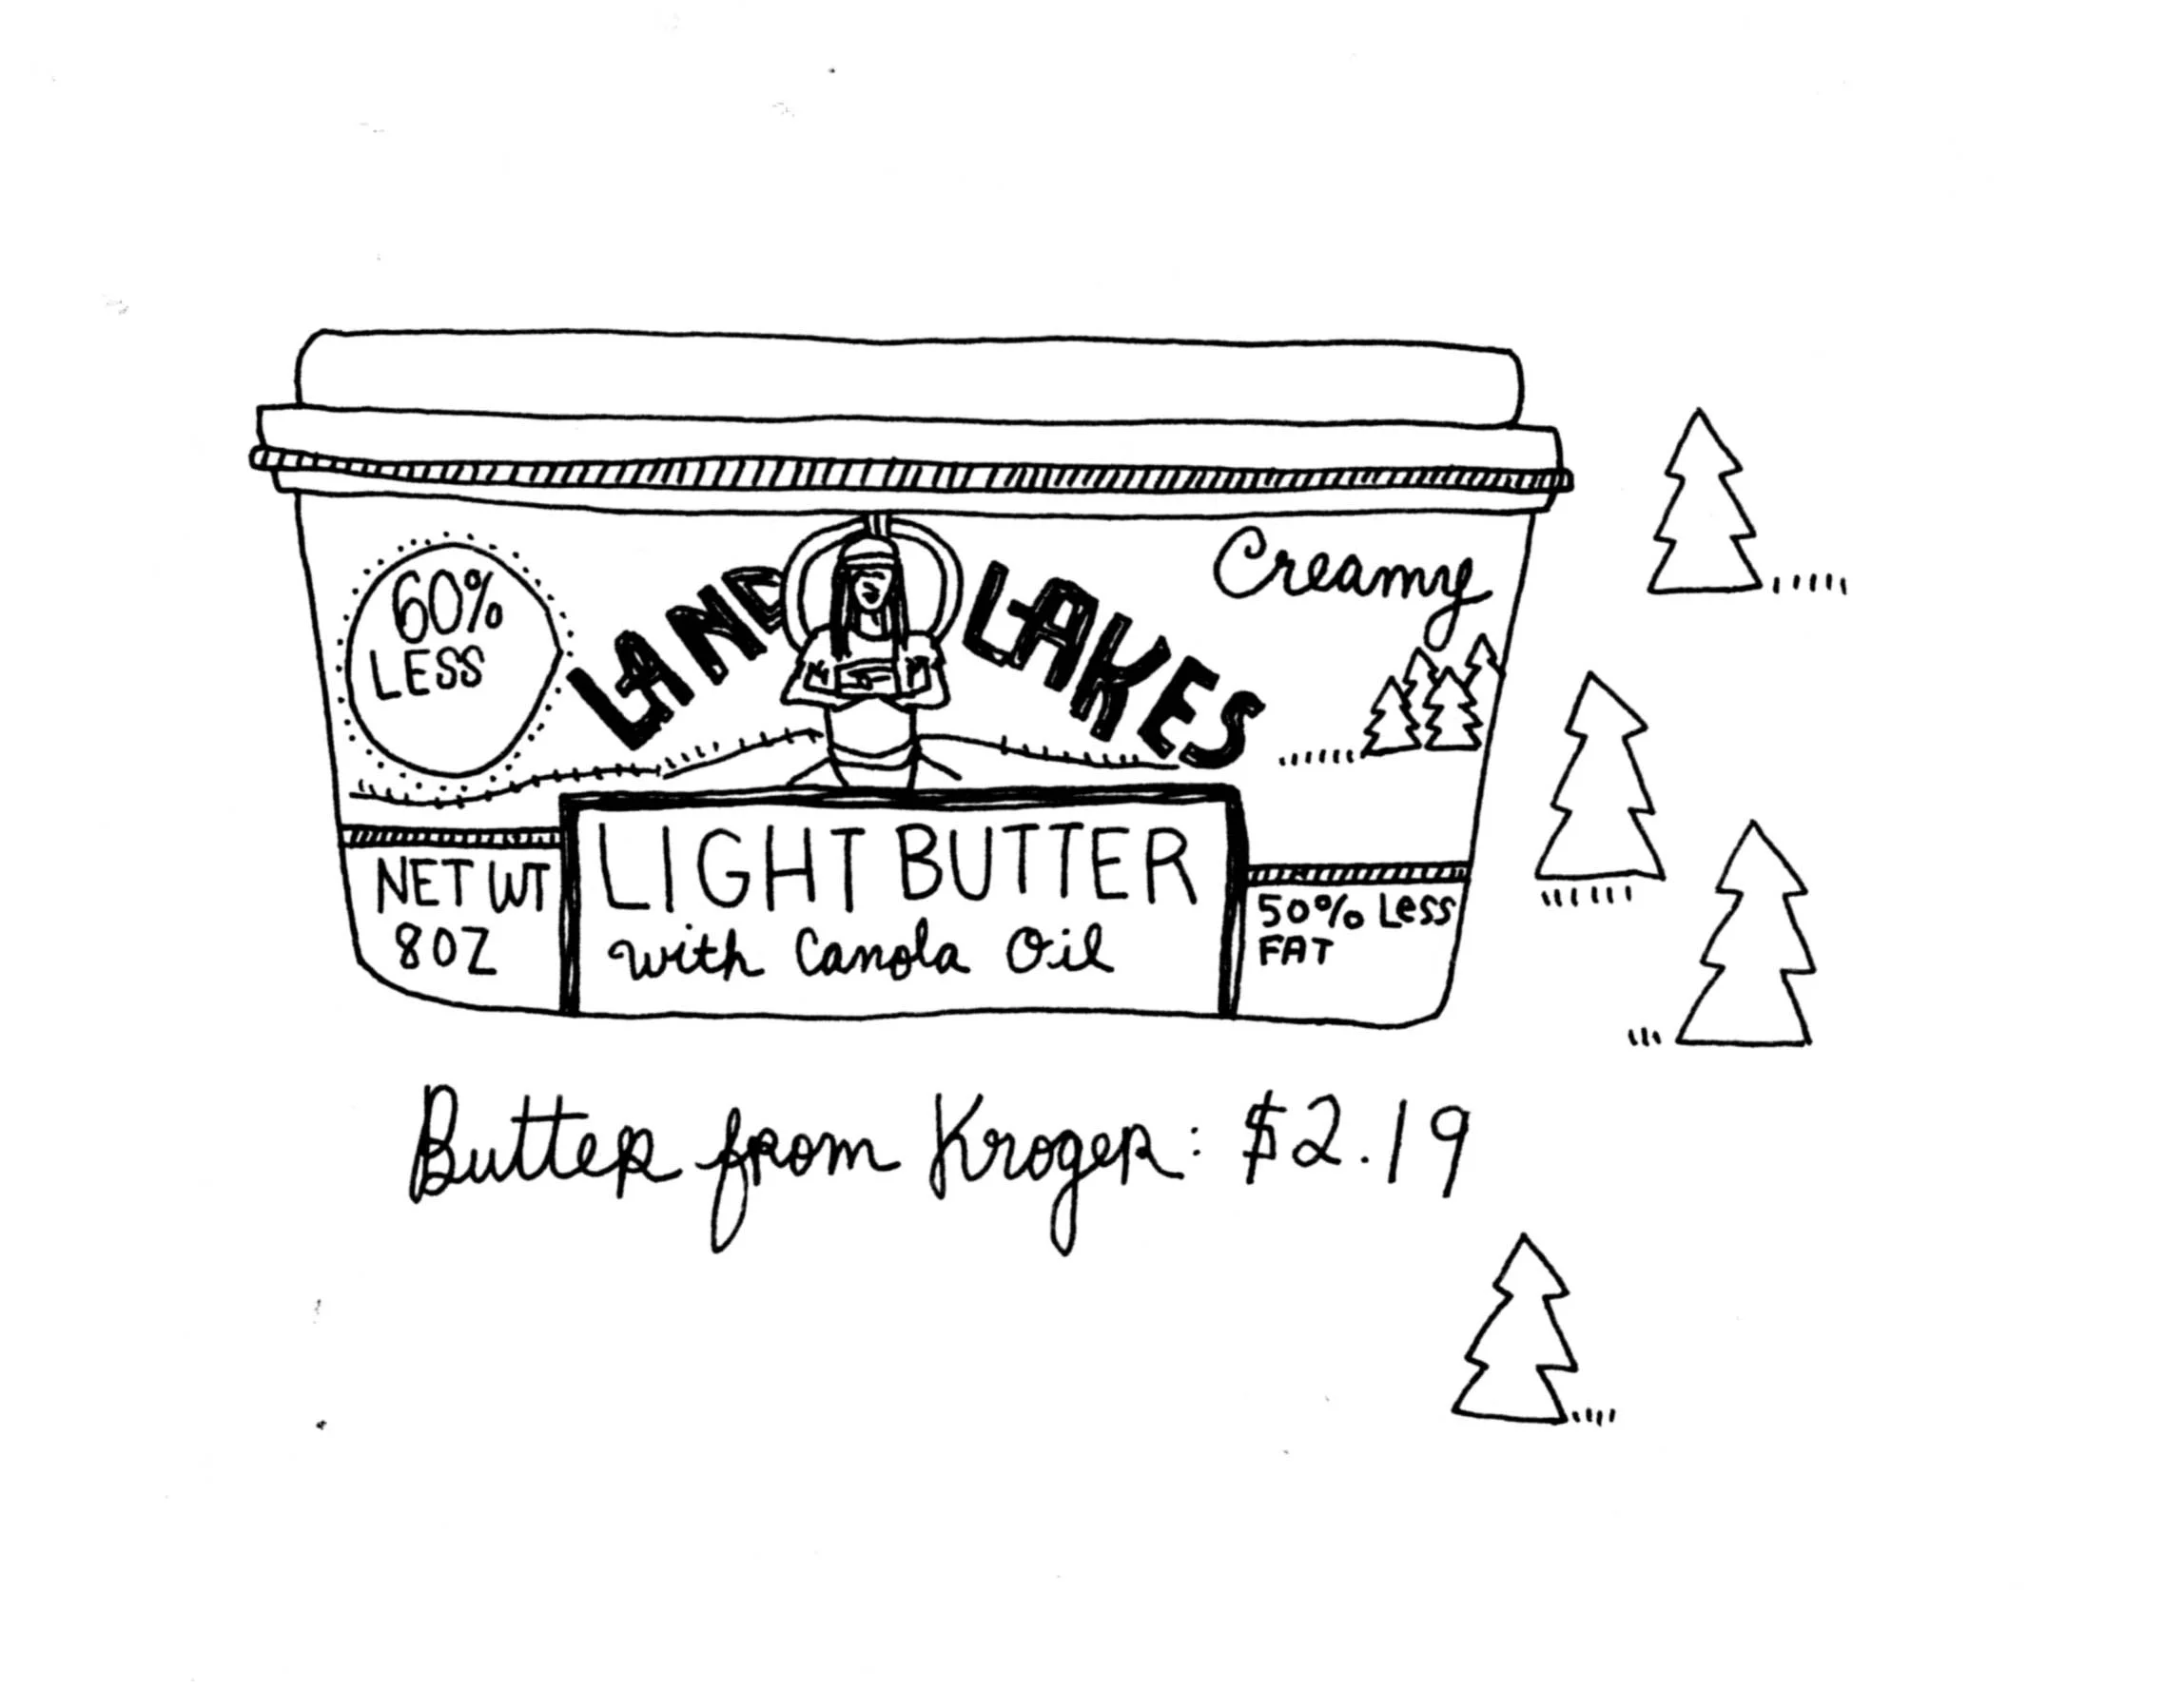 60%
LESS
LAND LAKES
Creamy
NET WT
8OZ
LIGHT BUTTER
with Canola Oil
50% Less
FAT
Butter from Kroger: $2.19